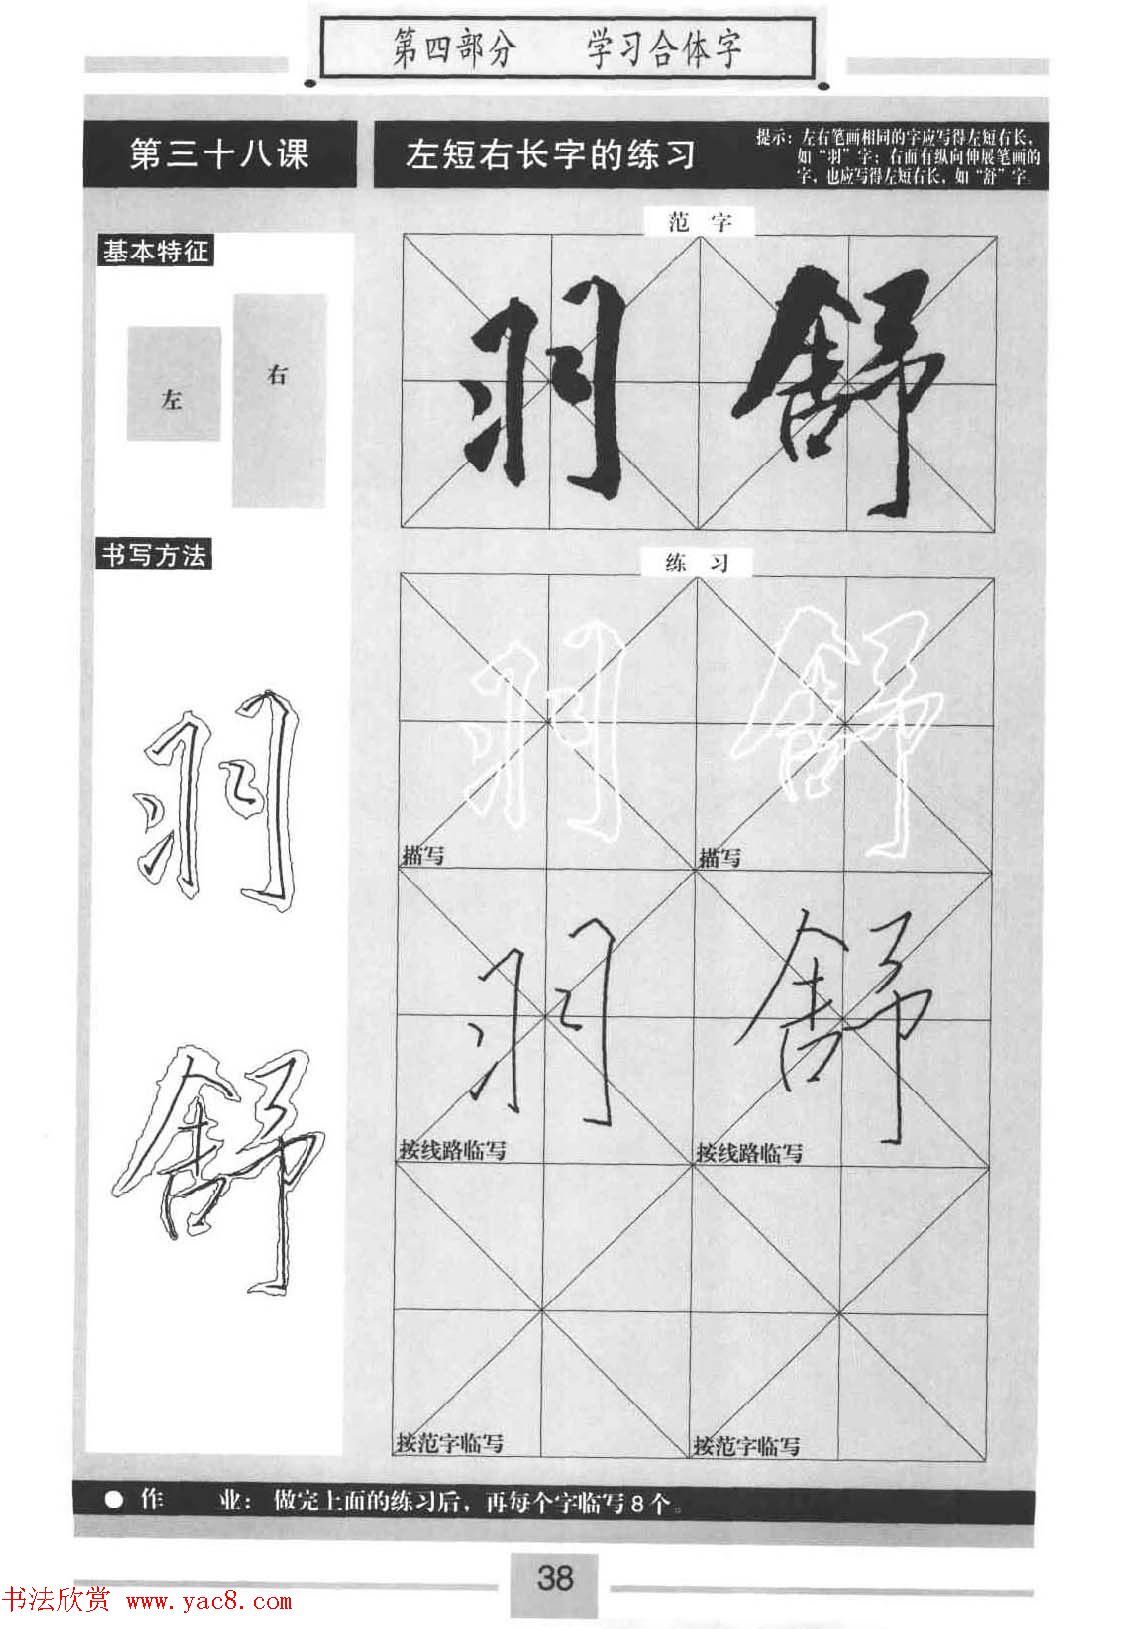 第四部分 学习合体字
第三十八课
左短右长字的练习
提示：左右笔画相同的字应写得左短右长，
如“羽”字；右面有纵向伸展笔画的
字，也应写得左短右长，如“舒”字。
基本特征
左
右
书写方法
羽
舒
范 字
羽 舒
练 习
羽 舒
描写 描写
羽 舒
按线路临写 按线路临写
按范字临写 按范字临写
● 作 业：做完上面的练习后，再每个字临写8个。
38
书法欣赏 www.yac8.com